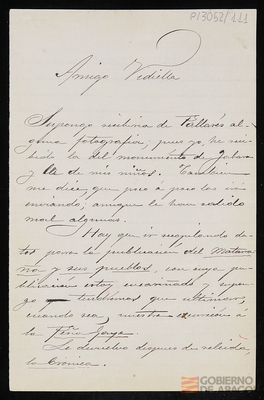 P13052/111
Amigo Vidiella
Supongo recibiria de Pallarés al-
guna fotografia, pues yo, he re-
cibido la del monumento de
y de mis niños. Tambien
me dice que poco á poco las irá
enviando, aunque le han salido
mal algunas.
Hay que ir recopilando da-
tos para la publicacion del Matarra-
ña y sus pueblos, con cuya pu-
blicacion estoy encariñado y supon-
go tendremos que ultimar,
cuando sea, nuestra escursion á
la Peña
Le devuelvo despues de releida,
la Crónica.
GOBIERNO
DE ARAGON